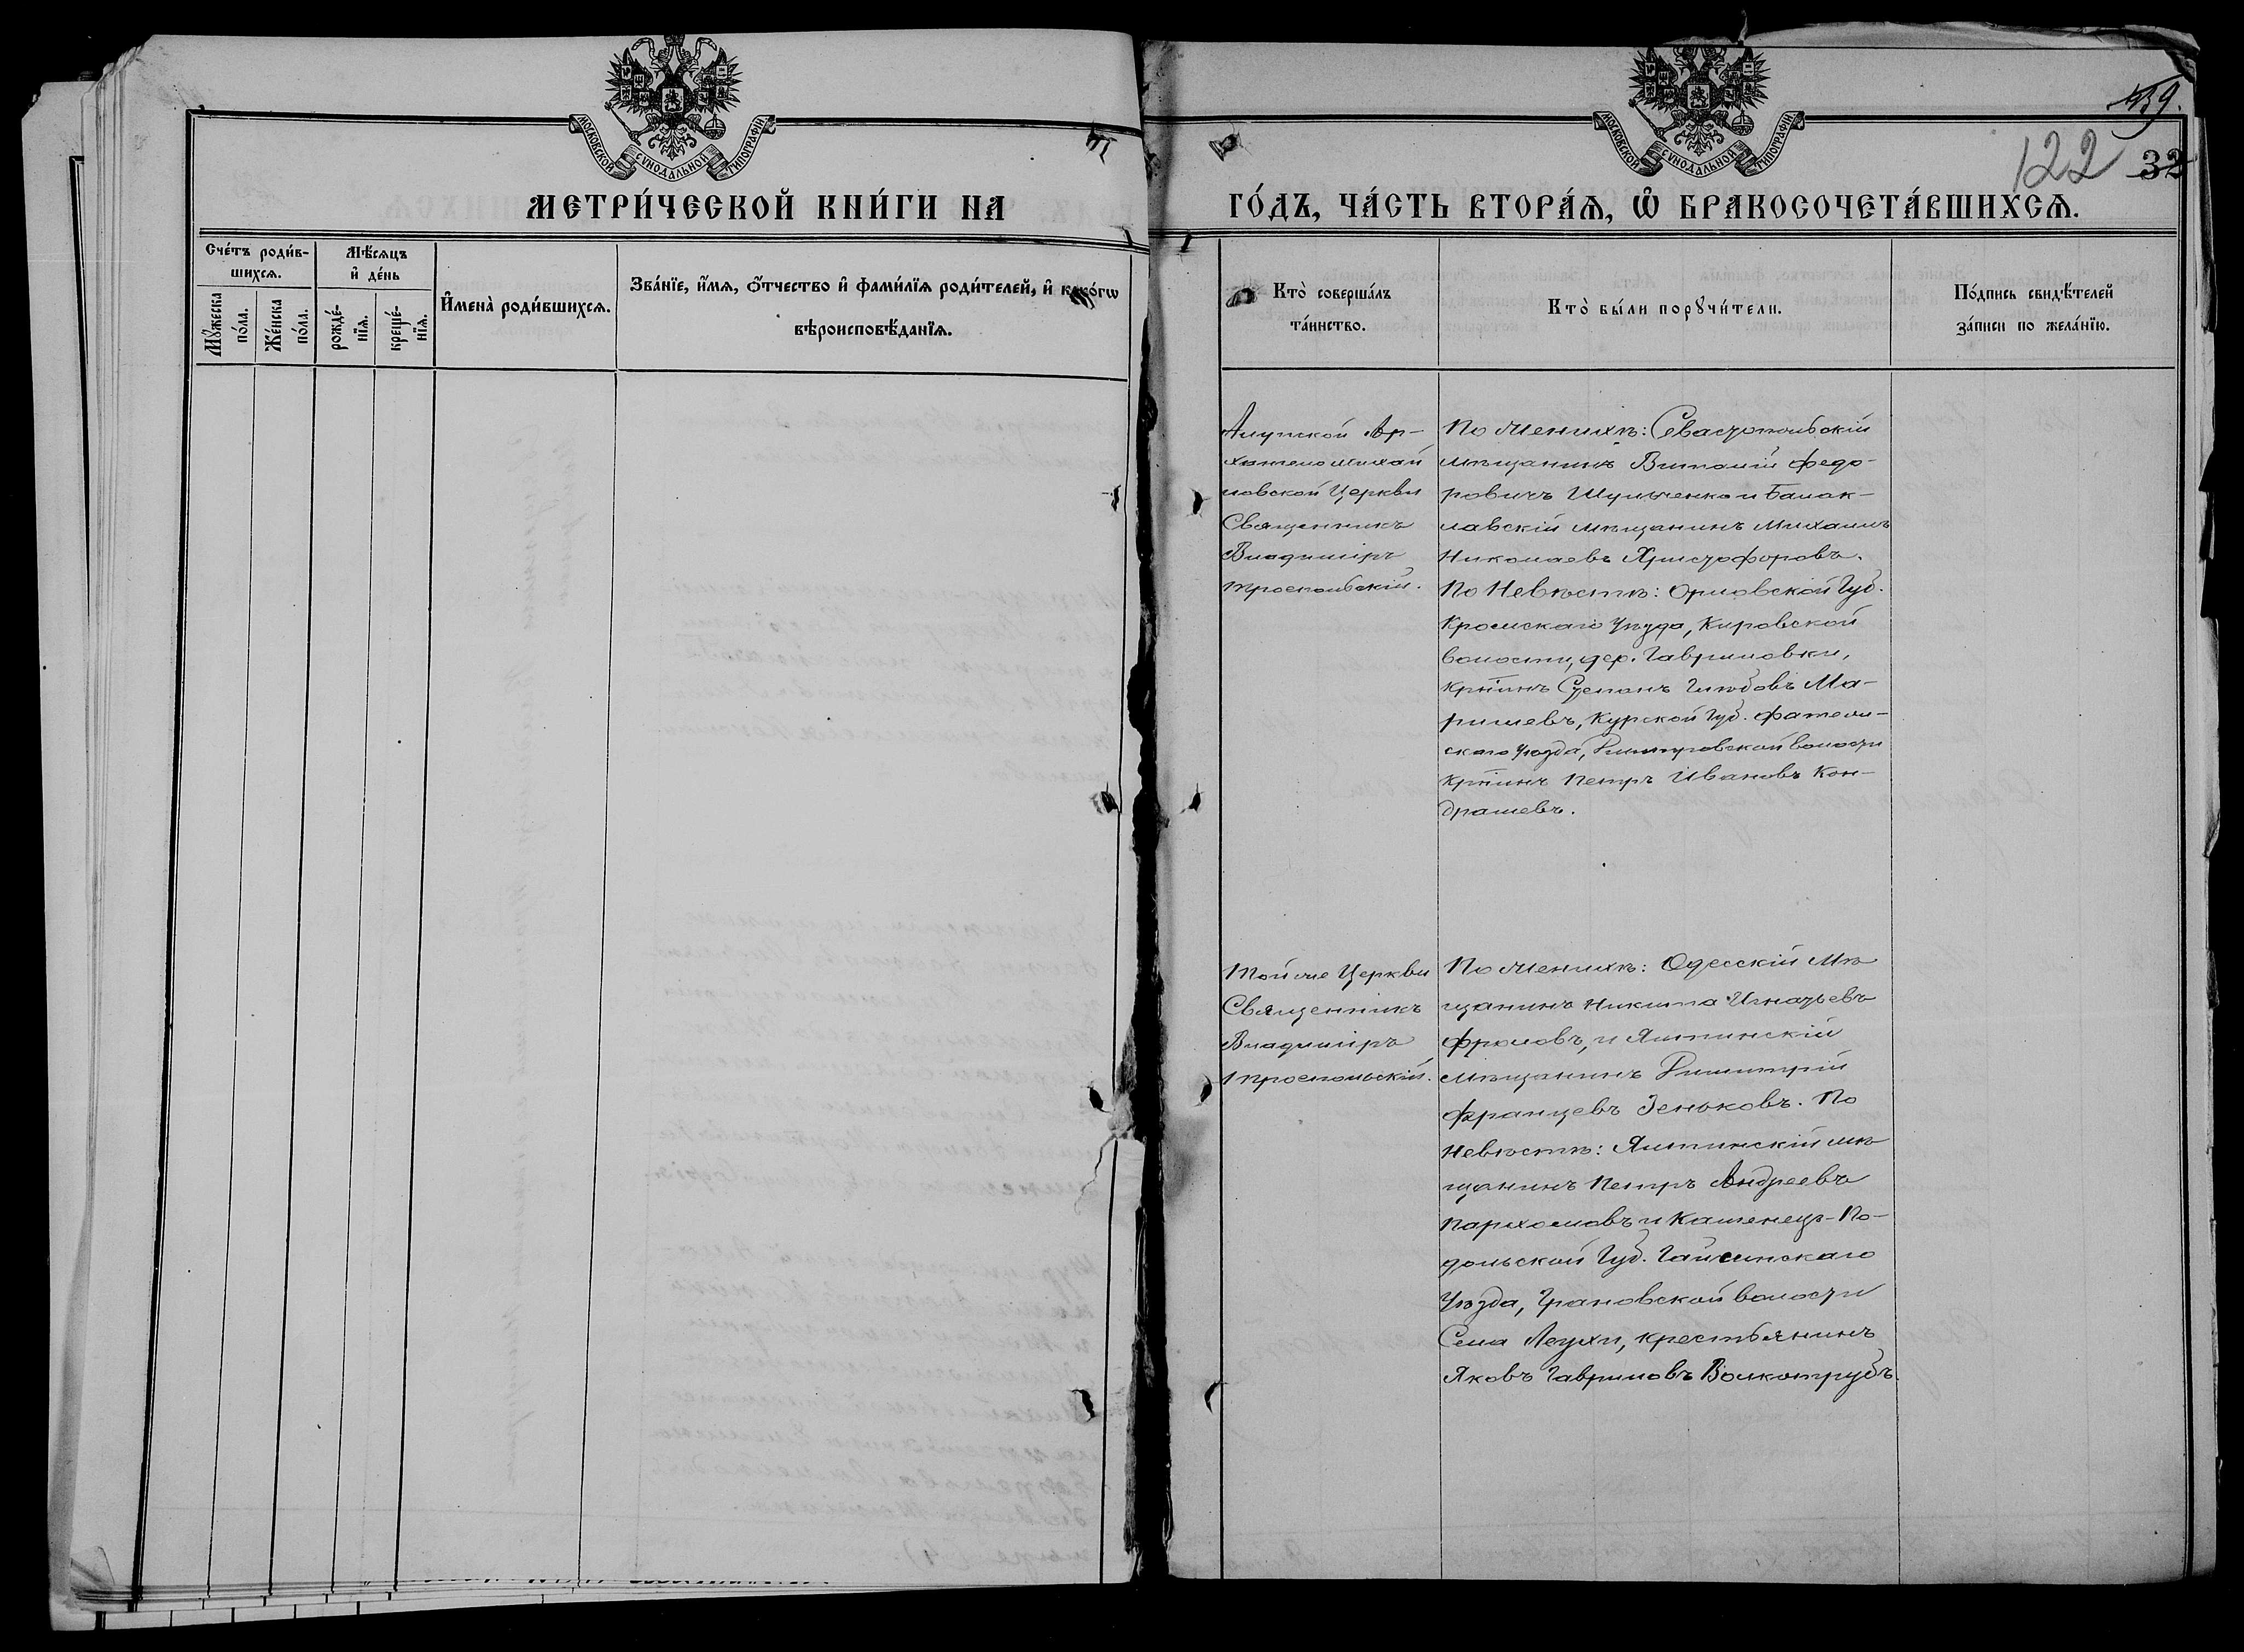 МОСКОВСКОЙ СѴНОДАЛЬНОЙ ТИПОГРАФІИ
МЕТРИ́ЧЕСКОЙ КНИ́ГИ НА
Сче́тъ роди́в-
шихсѧ.
Мꙋ́жеска по́ла.
Же́нска по́ла.
Мѣ́сѧцъ
и҆ де́нь
рожде́-
нїѧ.
креще́-
нїѧ.
И҆мена̀ роди́вшихсѧ.
Зва́нїе, и҆́мѧ, ѻ҆́тчество и҆ фами́лїѧ роди́телей, и҆ како́гѡ
вѣроисповѣ́данїѧ.
МОСКОВСКОЙ СѴНОДАЛЬНОЙ ТИПОГРАФІИ
459.
122 32
ГО́ДЪ, ЧА́СТЬ ВТОРА́Ѧ, Ѡ҆ БРАКОСОЧЕТА́ВШИХСѦ.
Кто̀ соверша́лъ
та́инство.
Кто̀ бы́ли порꙋчи́тели.
По́дпись свидѣ́телей
за́писи по жела́нїю.
Алупской Ар-
хангело Михай
ловской Церкви
Священникъ
Владиміръ
Троепольскій.
По Женихѣ: Севастопольскій
мѣщанинъ Виталій Федо-
ровичъ Шульченко и Балак-
лавскій мѣщанинъ Михаилъ
Николаевъ Христофоровъ.
По Невѣстѣ: Орловской Губ.
Кромскаго Уѣзда, Кировской
волости, дер. Гавриловки,
Крнинъ Степанъ Глѣбовъ Ма-
ришевъ, Курской Губ. Фатеж-
скаго Уѣзда, Дмитровской волости
Крнинъ Петръ Ивановъ Кон-
драшевъ.
Той же Церкви
Священникъ
Владиміръ
Троепольскій.
По Женихѣ: Одесскій Мѣ
щанинъ Никита Игнатьевъ
Фроловъ, и Ялтинскій
мѣщанинъ Димитрій
Францевъ Зеньковъ. По
Невѣстѣ: Ялтинскій мѣ
щанинъ Петръ Андреевъ
Пархомовъ и Каменец-По-
дольской Губ. Гайсинскаго
Уѣзда, Грановской волости
Села Леухи, крестьянинъ
Яковъ Гавриловъ Волкотрубъ.